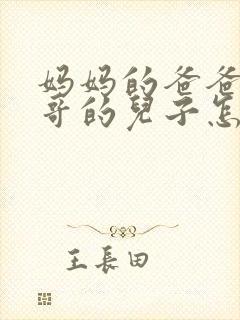 妈妈的爸爸
哥的兒子怎
王長田